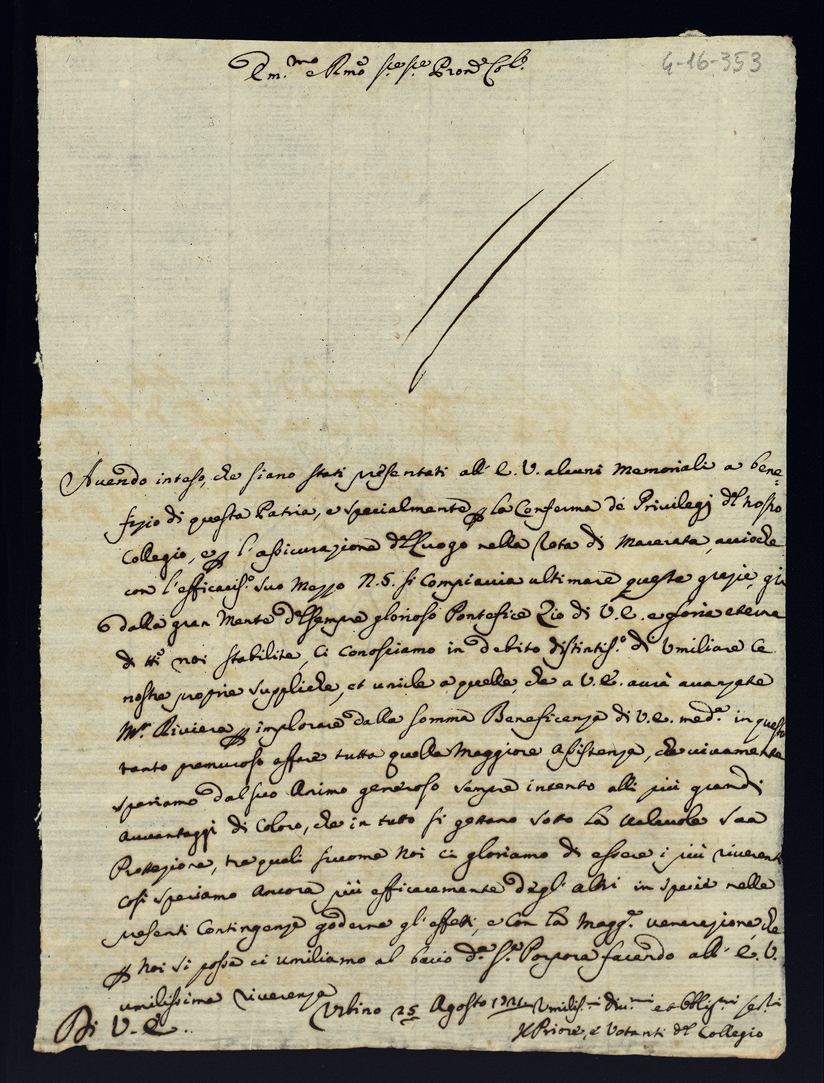 Em.mo e Rmo Sre Sre Prone Colo
4-16-353
Auendo inteso, che siano stati presentati all' E. V. alcuni Memoriali a bene=
fizio di questa Patria, e specialmente p la Conferma de Privilegj del nostro
Collegio, e p l'assicurazione del Luogo nella Rota di Macerata, acciochè
con l'efficaciss.o suo Mezzo N. S. si Compiaccia ultimare queste grazie, già
dalla gran Mente del sempre glorioso Pontefice Zio di V. E. e
di noi stabilite, Ci Conosciamo in debito distintiss.o di Vmiliare le
nostre proprie suppliche, et unirle a quelle, che a V. E. aurà auanzate
Mr. Riviera p implorare dalla somma Beneficenza di V. E. med.a in questo
tanto premuroso affare tutta quella Maggiore Assistenza, che viuamente
speriamo dal suo Animo generoso sempre intento alli più grandi
auuantaggi di Coloro, che in tutto si gettano sotto la ualeuole sua
Protezione, tra quali siccome Noi ci gloriamo di essere i più riuerenti
così speriamo ancora più efficacemente degl' altri in specie nelle
presenti Contingenze goderne gl' effetti, e con la Magg.e venerazione, che
p Noi si possa ci umiliamo al bacio da Sa Porpora facendo all' E. V.
umilissima riuerenza
Vrbino 25 Agosto 1721 Vmiliss.mi Diu.mi et Obblig.mi Ser.ri
Di V. E.
Il Priore, e Votanti del Collegio